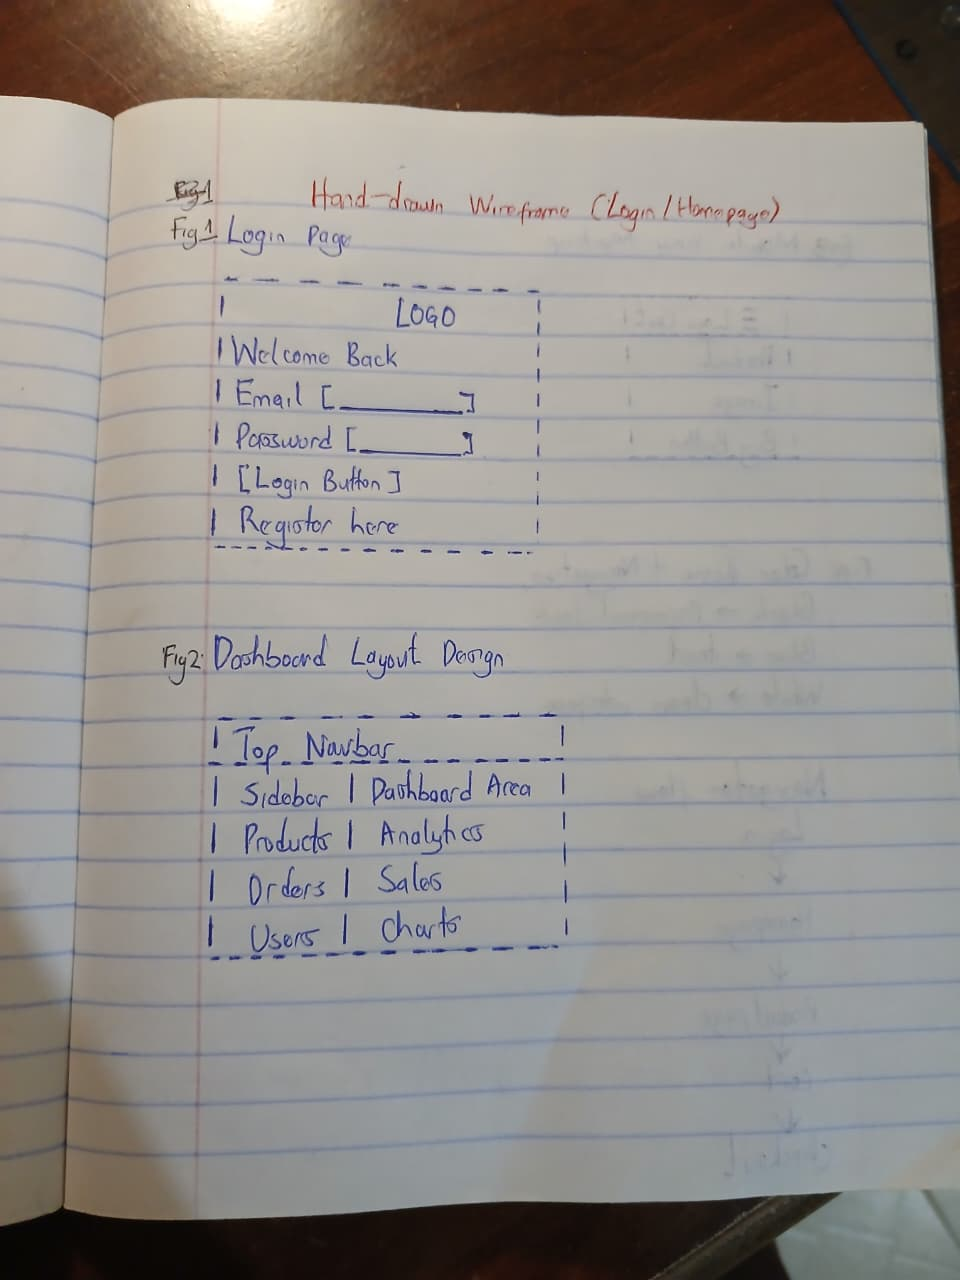 Hand-drawn Wireframe (Login/Homepage)
Fig 1 Login Page
LOGO
Welcome Back
Email [__________]
Password [_________]
[Login Button]
Register here
Fig 2: Dashboard Layout Design
Top Navbar
Sidebar | Dashboard Area
Products | Analytics
Orders | Sales
Users | Charts